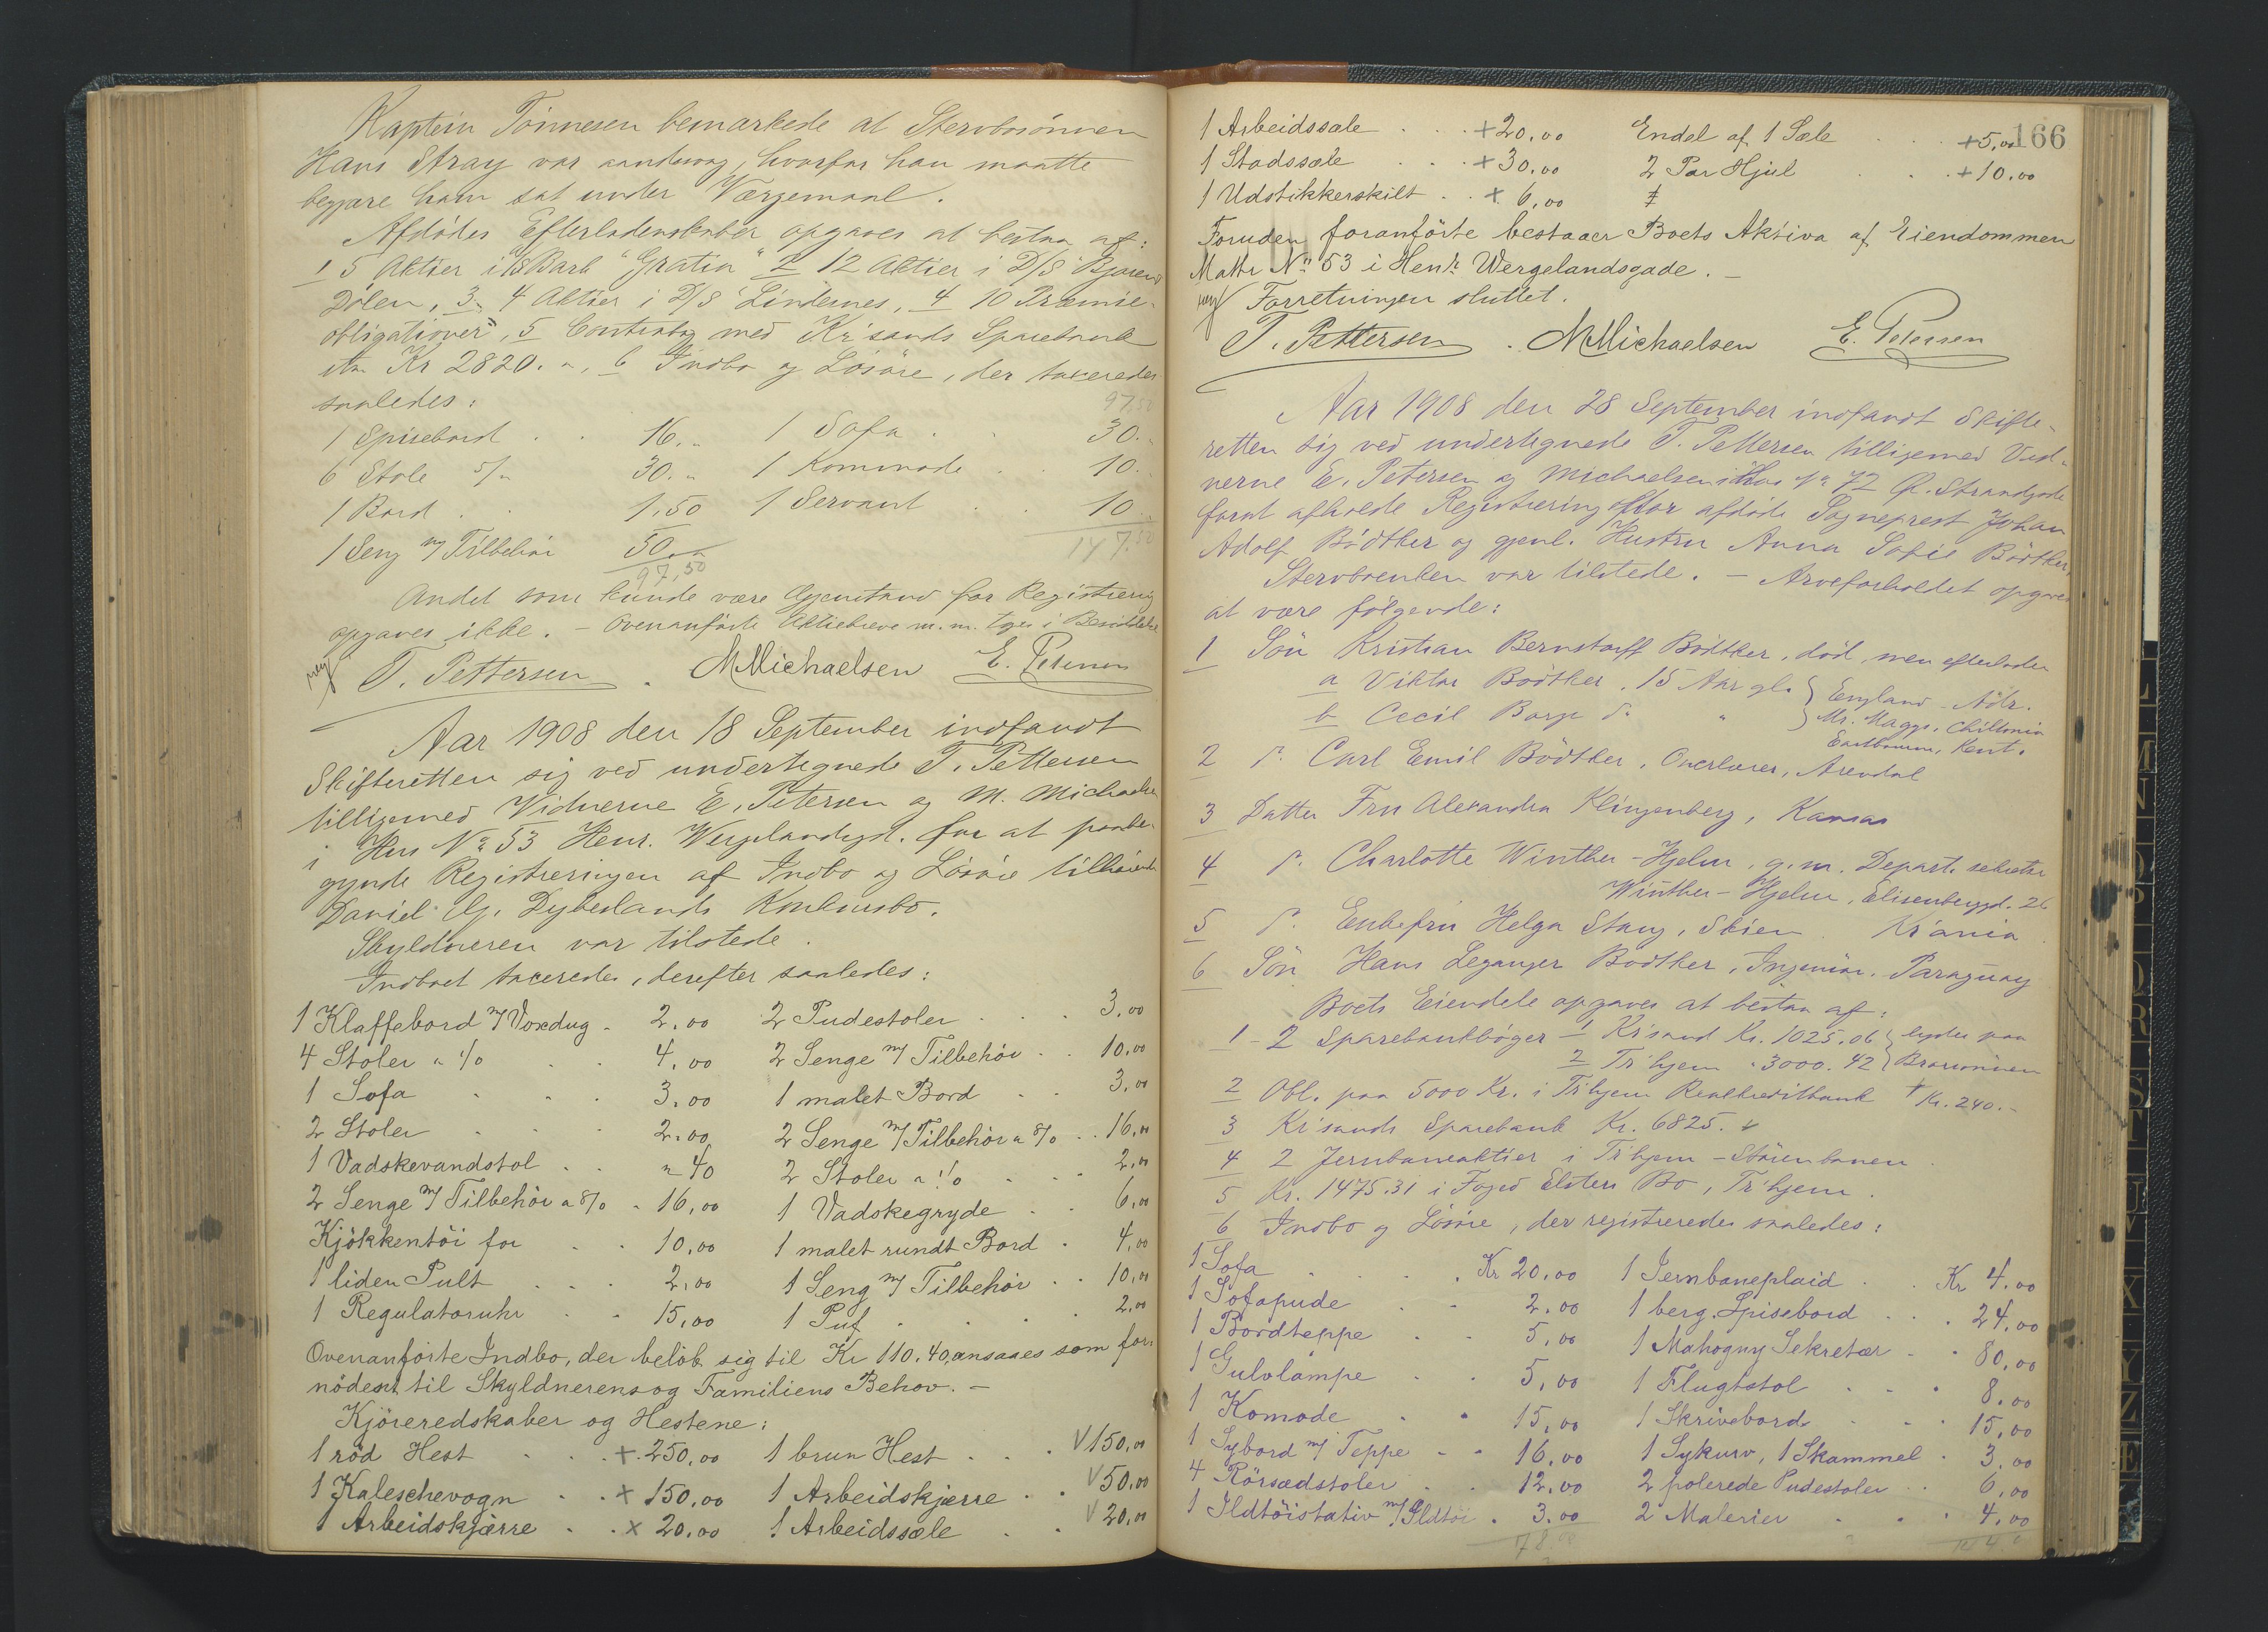 Kaptein Tönnesen bemærkede at Stervbosönnen
Hans Stray var aandssvag, hvorfor han maatte
begjære ham sat under Værgemaal.
Afdödes Efterladenskaber opgaves at bestaa af:
1 5 Aktier i Bark "Gratia" 2 12 Aktier i D/S "Bjoren
Dölen, 3 4 Aktier i D/S Lindernes, 4 10 Præmie-
obligationer, 5 Contrabog med Kr'sands Sparebank
Kr 2820. ", 6 Indbo og Lösöre, der taxeredes
saaledes:
97,50
1 Spisebord . . 16. " 1 Sofa . . 30. "
6 Stole 5/" 30. " 1 Kommode . . 10. "
1 Bord . . 1,50 1 Servant . . 10 "
1 Seng m/ Tilbehör 50. " 147.50
97,50
Andet som kunde være Gjenstand for Registrering
opgaves ikke. – Ovenanförte Aktiebreve m. m. toges i Besiddelse
T. Pettersen . M Michaelsen E. Petersen
Aar 1908 den 18 September indfandt
Skifteretten sig ved undertegnede T. Pettersen
tilligemed Vidnerne E. Petersen og M. Michaelsen
i Hus No 53 Henr. Wergelandsgd. for at paabe-
gynde Registreringen af Indbo og Lösöre tilhörende
Daniel Dybeslands Konkursbo.
Skyldneren var tilstede.
Indboet taxeredes, derefter saaledes:
1 Klaffebord m/ Voxdug . 2,00 2 Pudestoler . . . 3,00
4 Stoler a 1/0 . . 4,00 2 Senge m/ Tilbehör . . 10,00
1 Sofa . . . 3,00 1 malet Bord . . 3,00
2 Stoler . . . 2,00 2 Senge m/ Tilbehör a 8/0 . . 16,00
1 Vadskevandstol . . " 40 2 Stoler a 1/0 . . . 2,00
2 Senge m/ Tilbehör a 8/0 . 16,00 1 Vadskegryde . . 6,00
Kjökkentöi for . . 10,00 1 malet rundt Bord . 4,00
1 liden Pult . . . 2,00 1 Seng m/ Tilbehör . . 10,00
1 Regulatoruhr . . 15,00 1 Puf . . . . 2,00
Ovenanförte Indbo, der belöb sig til Kr 110.40, ansaaes som for-
nödent til Skyldnerens og Familiens Behov. –
Kjöreredskaber og Hestene:
1 röd Hest . . . +. 250,00 1 brun Hest . . . V 150,00
1 Kaleschevogn . . + 150,00 1 Arbeidskjærre . . V 50,00
1 Arbeidskjærre . . x 20,00 1 Arbeidssæle . . V 20,00
166
1 Arbeidssæle . . . + 20,00 Endel af 1 Sæle . . + 5,00
1 Stadssæle . . . + 30,00 2 Par Hjul . . . + 10,00
1 Udstikkerskilt . . + 6,00
Foruden foranförte bestaaer Boets Aktiva af Eiendommen
Mattr No 53 i Henr. Wergelandsgade. –
Forretningen sluttet.
T. Pettersen . M Michaelsen E. Petersen
Aar 1908 den 28 September indfandt Skifte-
retten sig ved undertegnede T. Pettersen tilligemed Vid-
nerne E. Petersen og Michaelsen i Hus No 72 Ø. Strandgade
forat afholde Registrering efter afdöde Sogneprest Johan
Adolf Bödtker og gjenl. Hustru Anna Sofie Bödtker.
Stervboenken var tilstede. – Arveforholdet opgaves
at være fölgende:
1 Sön Kristian Bernstorff Bödtker, död, men efterlader
a Viktor Bödtker, 15 Aar gl. } England – Adr.
b Cecil Borge do " } Mr. Maggs, Chiltonia
Eastbourne, Kent.
2 do Carl Emil Bödtker, Overlærer, Arendal
3 Datter Fru Alexandra Klingenberg, Kansas
4 do Charlotte Winther-Hjelm, g. m. Depart. sekretær
Winther-Hjelm, Elisenbergvd. 26
5 do Enkefru Helga Stang, Skien . Kr'ania
6 Sön Hans Leganger Bödtker, Ingeniör, Paraguay
Boets Eiendele opgaves at bestaa af:
1 – 2 Sparebankböger – 1 Kr'sand Kr. 1025.06 } lyder paa
2 Tr'hjem " 3000.42 }
2 Obl. paa 5000 Kr. i Tr'hjem Realkreditbank + Kr. 240. –
3 Kr'sands Sparebank Kr. 6825.
4 2 Jernbaneaktier i Tr'hjem – Störenbanen.
5 Kr. 1475.31 i Foged Elsters Bo, Tr'hjem.
6 Indbo og Lösöre, der registreredes saaledes:
1 Sofa . . . . Kr 20,00 1 Jernbaneplaid . . Kr 4,00
1 Sofapude . . 2,00 1 berg. Spisebord . . . 24,00
1 Bordteppe . . 5,00 1 Mahogny Sekretær . . 80,00
1 Gulvlampe . . 5,00 1 Flugtstol . . . 8,00
1 Komode . . 15,00 1 Skrivebord . . . 15,00
1 Sybord m/ Teppe . . 16,00 1 Sykurv, 1 Skammel . 3,00
4 Rörsædstoler . . 12,00 2 polerede Pudestoler . . 6,00
1 Ildtöistativ m/ Ildtöi . 3,00 2 Malerier . . . 4,00
78,00